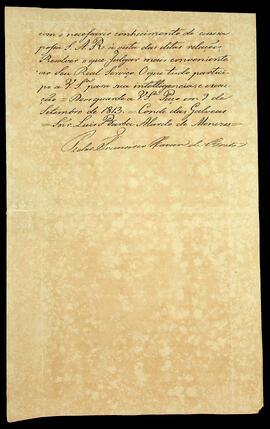 com o necessario conhecimento de causa
possa S. A. R. á vista das ditas relações
Resolver o que julgar mais conveniente
ao Seu Real Serviço. O que tudo partici-
po a V. S.ª para sua intelligencia, e execu-
ção = Deos guarde a V. S.ª Paço em 2 de
Setembro de 1813. = Conde das Galveas
= Snr. Luis Barba Alardo de Menezes =
Francisco